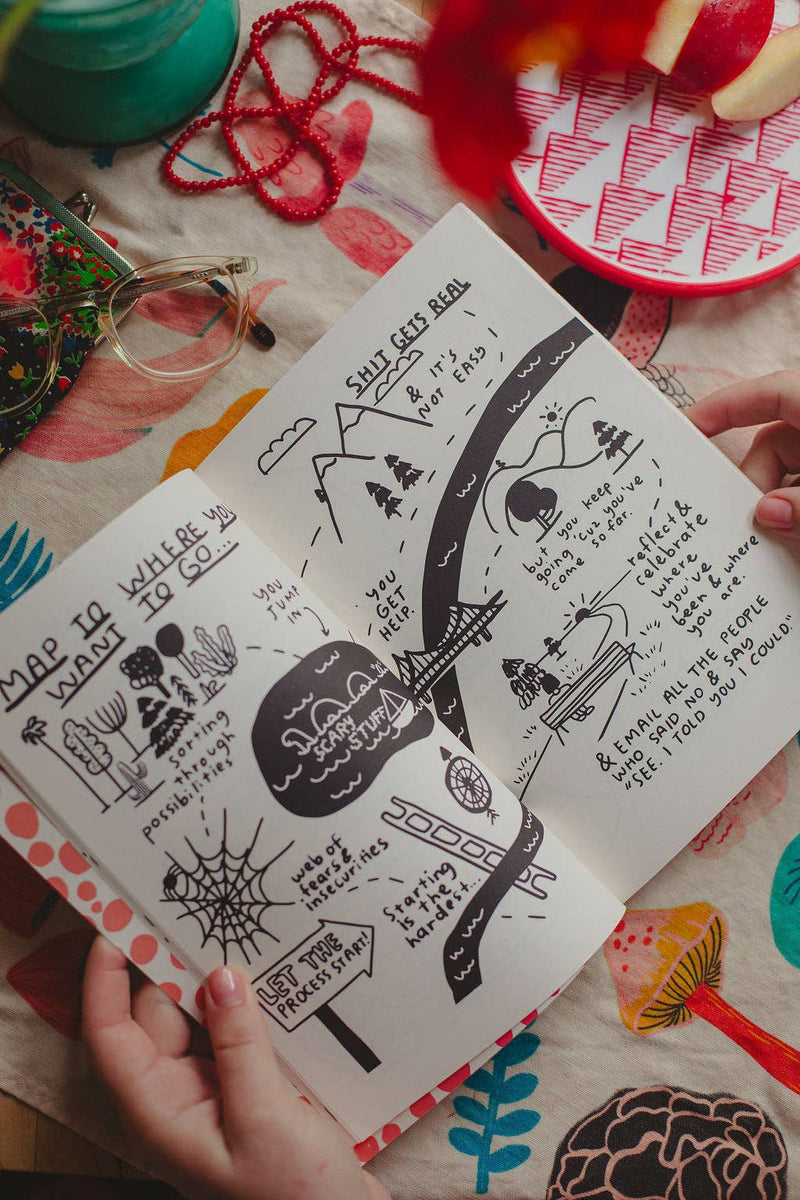 MAP TO WHERE YOU
WANT TO GO...
Sorting
through
possibilities
web of
fears &
insecurities
LET THE
PROCESS START!
Starting
is the
hardest...
YOU
JUMP
IN
SCARY
STUFF
SHIT GETS REAL
& IT'S
NOT EASY
YOU
GET
HELP.
but you keep
going 'cuz you've
come so far.
reflect &
celebrate
where
you've
been & where
you are.
& EMAIL ALL THE PEOPLE
WHO SAID NO & SAY
"SEE. I TOLD YOU I COULD."